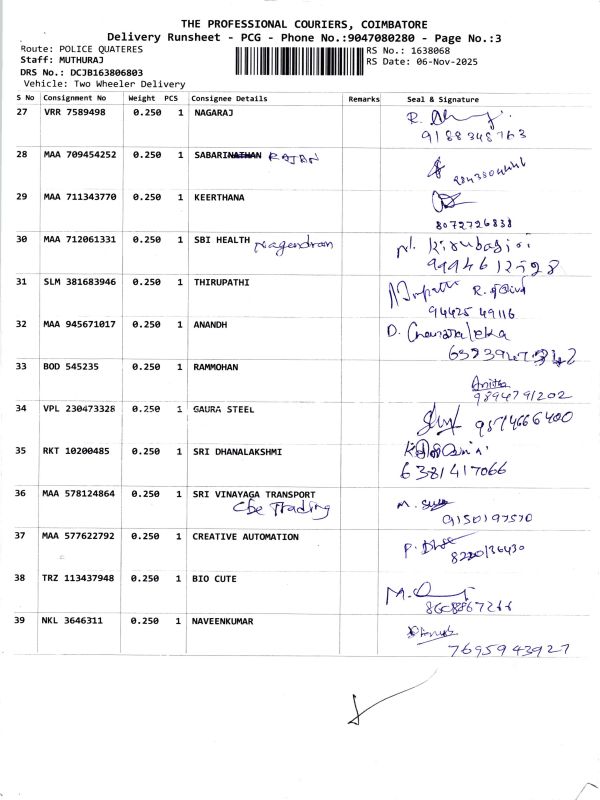 THE PROFESSIONAL COURIERS, COIMBATORE
Delivery Runsheet - PCG - Phone No.:9047080280 - Page No.:3
Route: POLICE QUATERES RS No.: 1638068
Staff: MUTHURAJ RS Date: 06-Nov-2025
DRS No.: DCJB163806803
Vehicle: Two Wheeler Delivery
S No Consignment No Weight PCS Consignee Details Remarks Seal & Signature
27 VRR 7589498 0.250 1 NAGARAJ R.
9188348763
28 MAA 709454252 0.250 1 SABARINATHAN RAJAN
29 MAA 711343770 0.250 1 KEERTHANA
8072726838
30 MAA 712061331 0.250 1 SBI HEALTH Nagendran N. Kirubagini
9994612528
31 SLM 381683946 0.250 1 THIRUPATHI
94425 49116
32 MAA 945671017 0.250 1 ANANDH D. Chandralekha
33 BOD 545235 0.250 1 RAMMOHAN Anitha
9894791202
34 VPL 230473328 0.250 1 GAURA STEEL 9874666400
35 RKT 10200485 0.250 1 SRI DHANALAKSHMI
6381417066
36 MAA 578124864 0.250 1 SRI VINAYAGA TRANSPORT M.
Cbe Trading 9150197570
37 MAA 577622792 0.250 1 CREATIVE AUTOMATION P.
38 TRZ 113437948 0.250 1 BIO CUTE M.
39 NKL 3646311 0.250 1 NAVEENKUMAR
7695943927